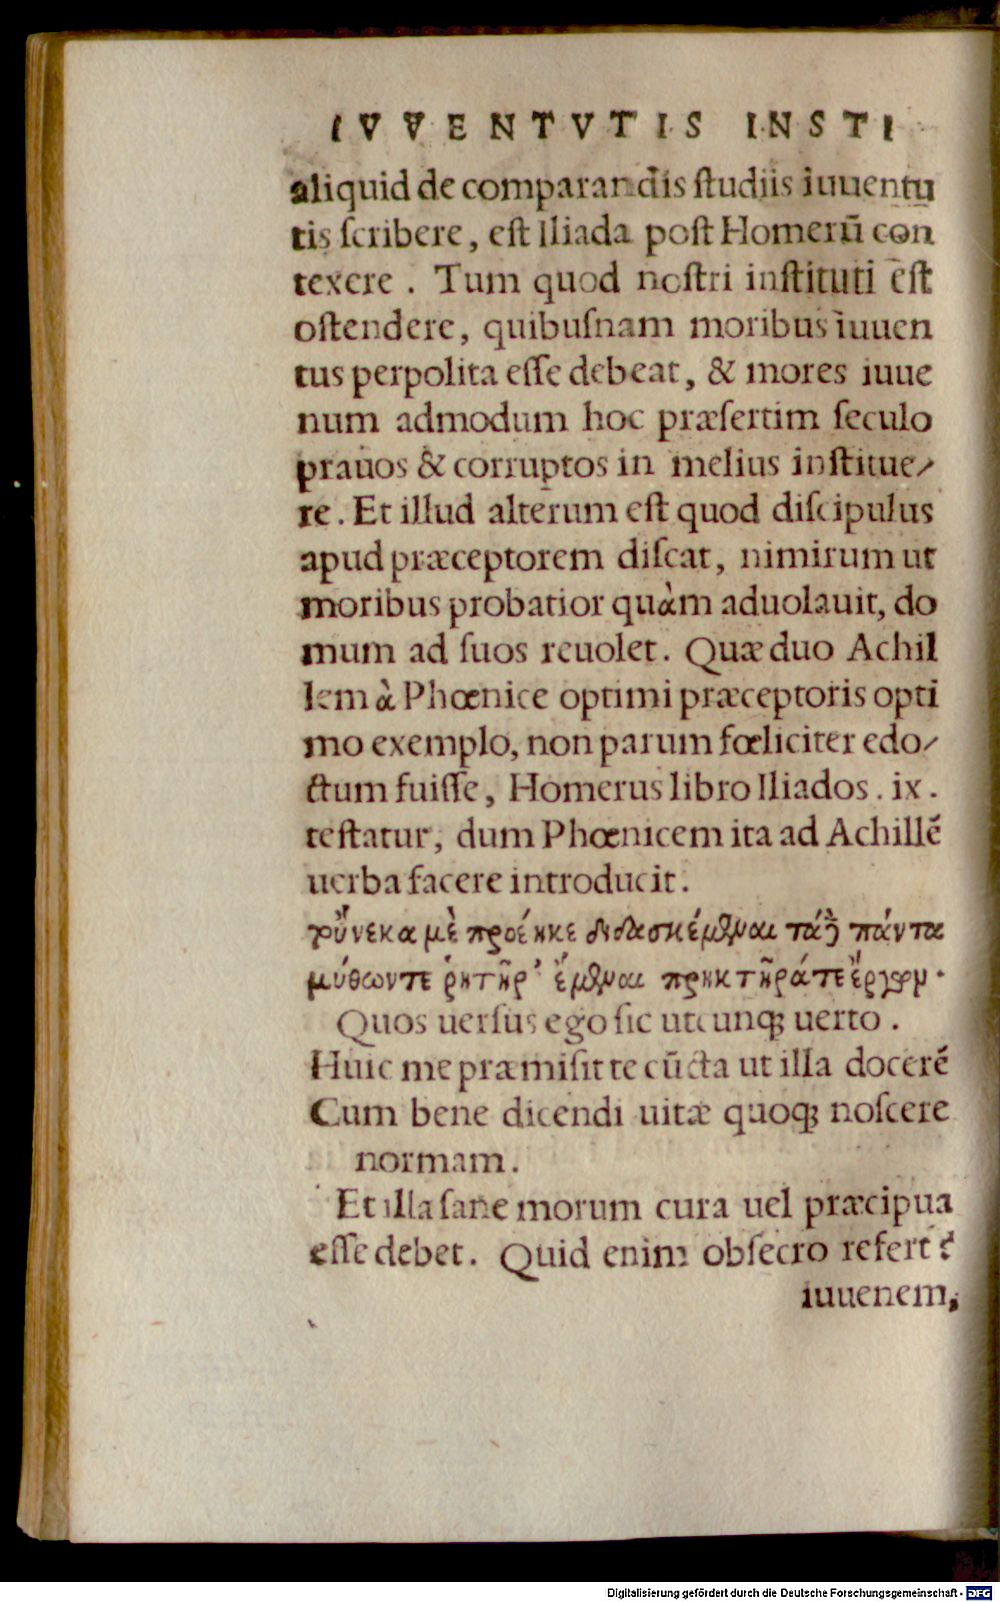 IVVENTVTIS INSTI
aliquid de comparandis ſtudiis iuuentu
tis ſcribere, eſt Iliada poſt Homerū con
texere. Tum quod noſtri inſtituti eſt
oſtendere, quibuſnam moribus iuuen
tus perpolita eſſe debeat, & mores iuue
num admodum hoc præſertim ſeculo
prauos & corruptos in melius inſtitue⸗
re. Et illud alterum eſt quod diſcipulus
apud præceptorem diſcat, nimirum ut
moribus probatior quàm aduolauit, do
mum ad ſuos reuolet. Quæ duo Achil
lem à Phœnice optimi præceptoris opti
mo exemplo, non parum fœliciter edo⸗
ctum fuiſſe, Homerus libro Iliados. ix.
teſtatur, dum Phœnicem ita ad Achillē
uerba facere introducit.
τοὔνεκα μὲ προέηκε διδασκέμθμναι τάδε πάντα
μύθωντε ῥητῆρ' ἔμθμναι πρηκτῆράτε ἔργων.
Quos uerſus ego ſic utcunq; uerto.
Huic me præmiſit te cūcta ut illa docerē
Cum bene dicendi uitæ quoq; noſcere
normam.
Et illa ſane morum cura uel præcipua
eſſe debet. Quid enim obſecro refert?
iuuenem,
Digitalisierung gefördert durch die Deutsche Forschungsgemeinschaft - DFG